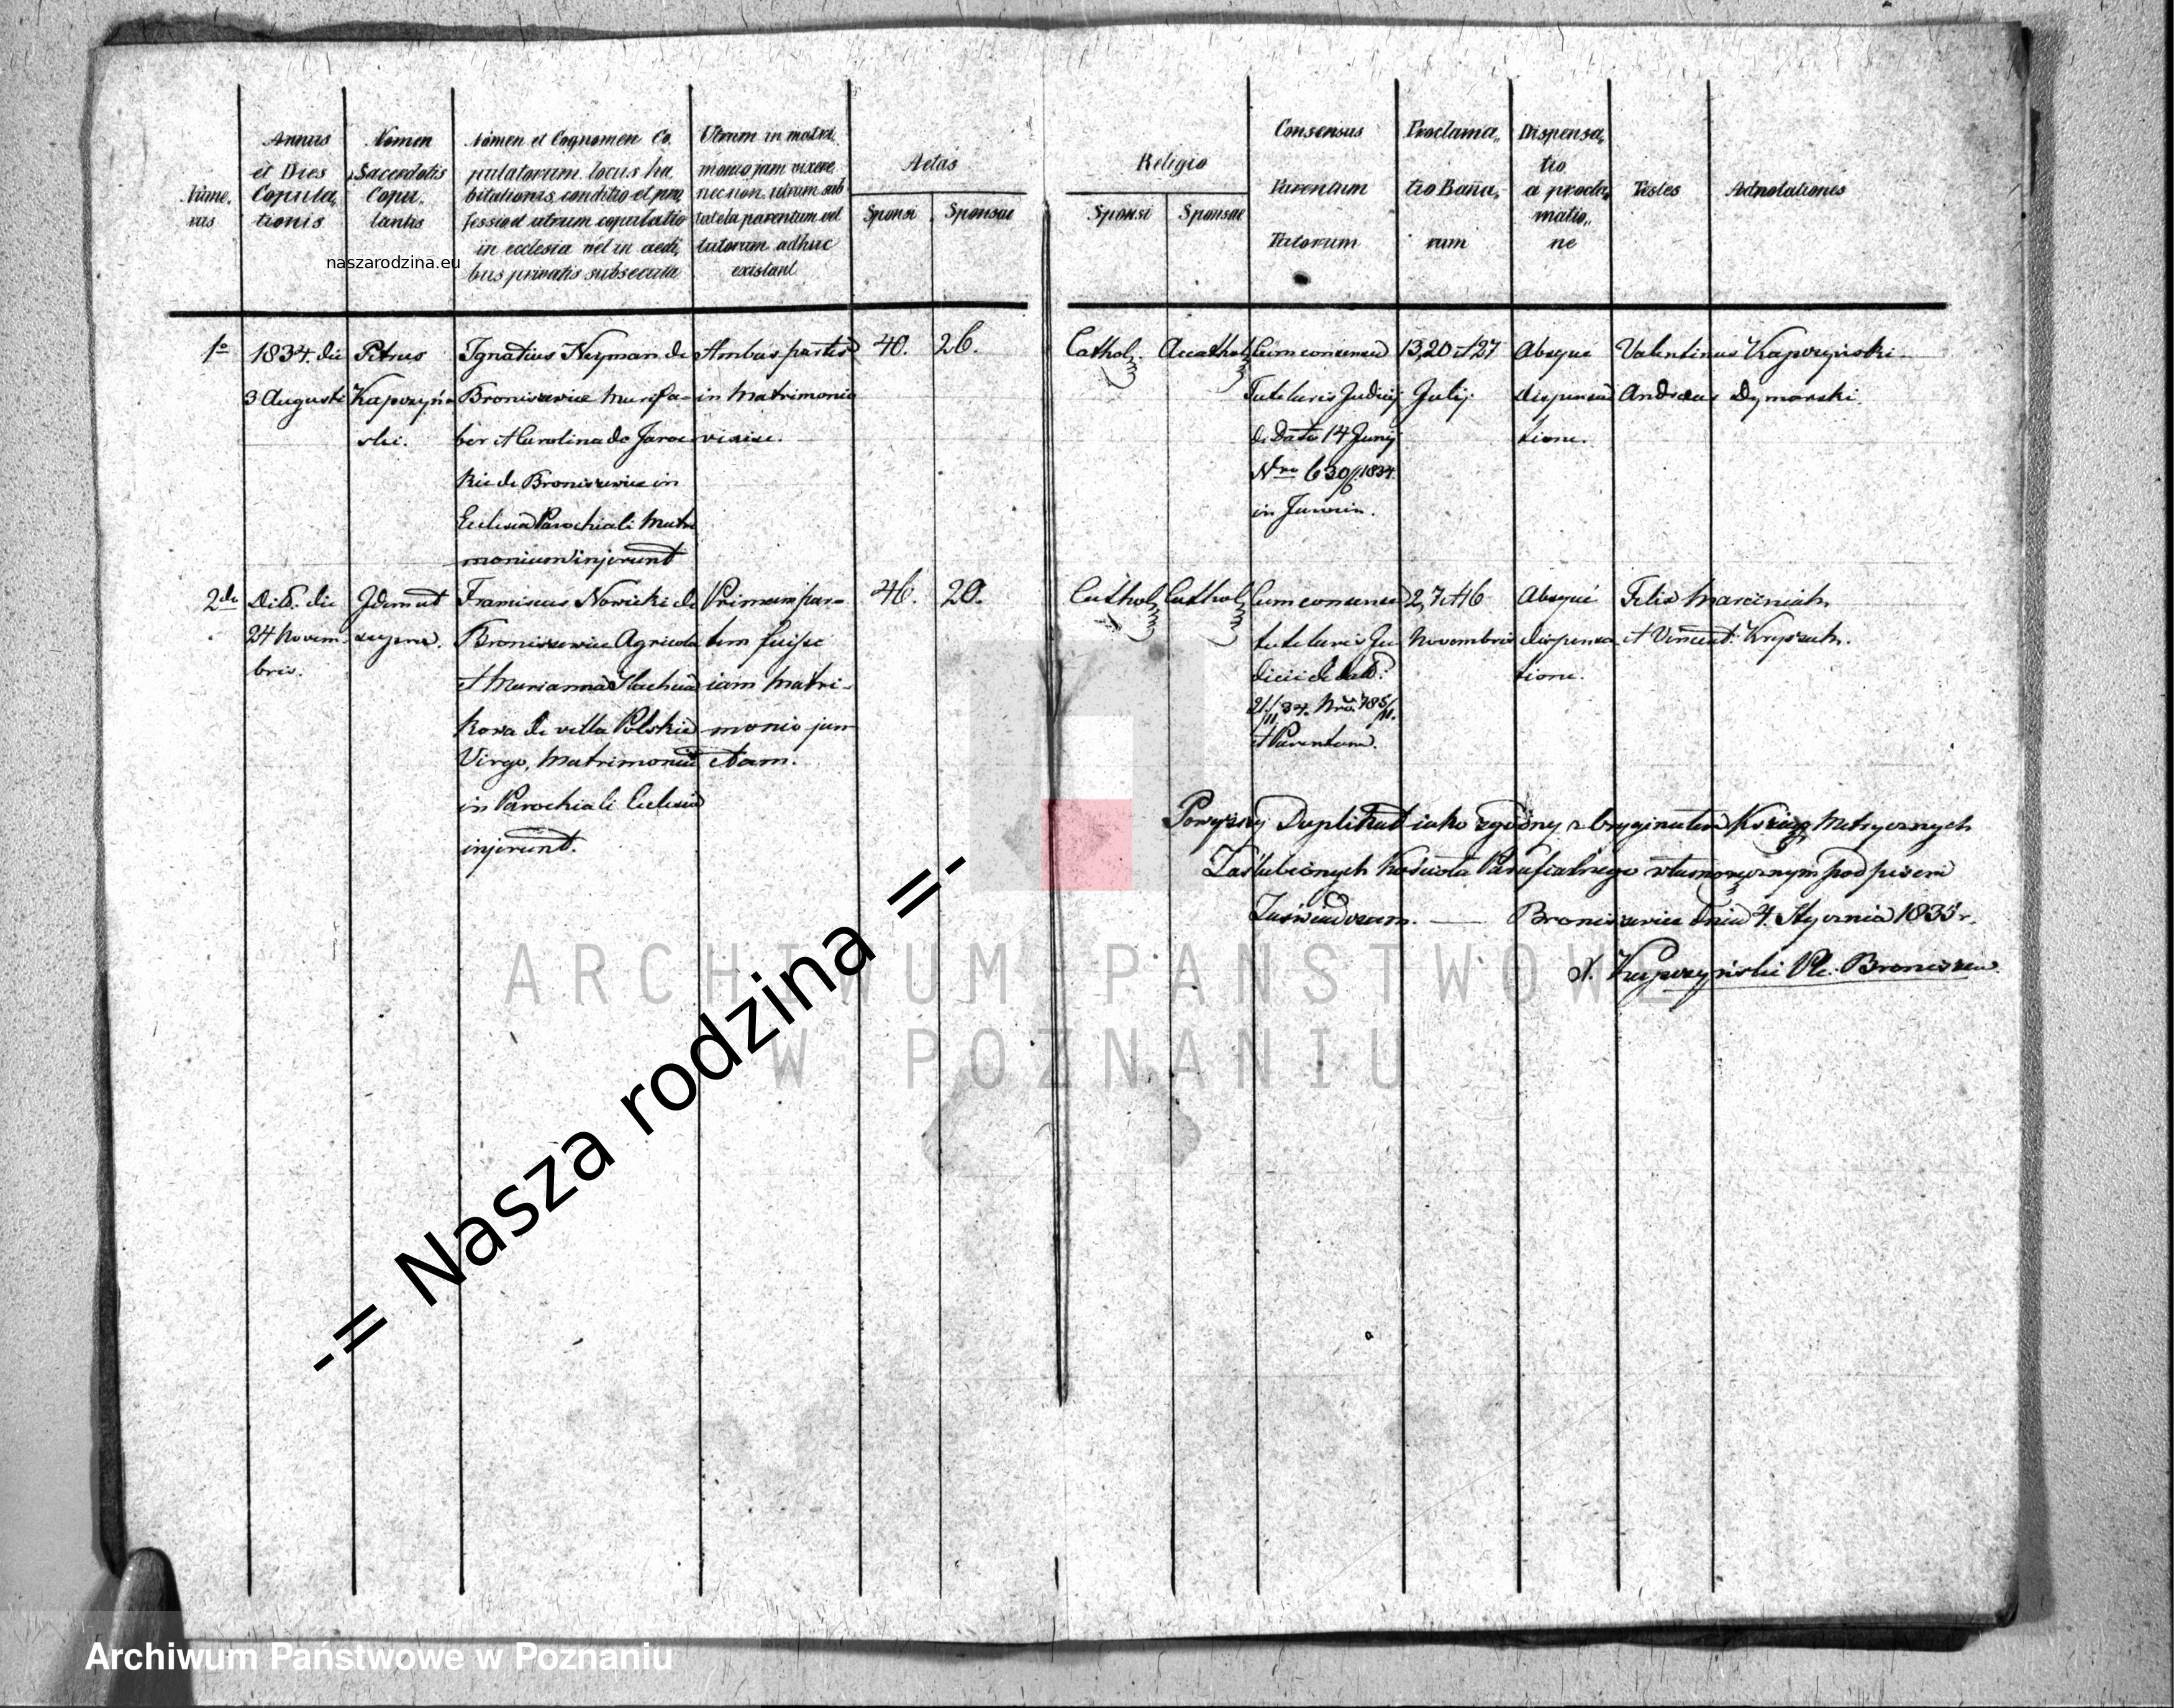 Nume,
rus
Annus
et Dies
Copula,
tionis
Nomen
Sacerdotis
Copu,
lantis
Nomen et Cognomen Co,
pulatorum, locus ha
bitationis, conditio et pro,
fessio et utrum copulatio
in ecclesia vel in aedi,
bus privatis subsecuta
Utrum in matri
monio jam vixere
nec non, utrum sub
tutela parentum vel
tutorum adhuc
existant
Aetas
Sponsi
Sponsae
Religio
Sponsi
Sponsae
Consensus
Parentum
Tutorum
Proclama,
tio Bañu,
rum
Dispensa,
tio
a procla,
matio,
ne
Testes
Adnotationes
naszarodzina.eu
1o
1834. die
3 Augusti
Petrus
Kaporzyń
ski.
Ignatius Neyman de
Broniszewice Murifa-
ber et Carolina de Jaroc
kie de Broniszewice in
Ecclesia Parochiali Matri
monium injerunt
Ambas partes
in Matrimonio
vixisse.
40.
26.
Cathol.
Acathol.
Cum consensu
Tutelaris Judicij
de Dato 14 Junij
Nro 630/1834.
in
13, 20 et 27
Julij.
Absque
dispensa
tione.
Valentinus Kaporzyński
Andreas Dymarski.
2do
Dito. die
24 Novem
bris.
Idem ut
supra.
Franciscus Nowicki de
Broniszewice Agricola
et Marianna
kowa de villa Polskie
Virgo, Matrimoniu
in Parochiali Ecclesia
injerunt.
Primam par-
tem fuisse
iam Matri-
monio jun
ctam.
46.
20.
Cathol.
Cathol.
Cum consensu
tutelaris Ju
dicii de dato
21/11 34. Nro. 785/11.
et Parentum.
2, 7 et 16
Novembris
Absque
dispensa
tione.
Felix Marciniak
et Vincent. Krysztk.
Powyższy Duplikat iako zgodny z Oryginałem Xsiąg Metrycznych
Zaślubionych Kościoła Parafialnego własnoręcznym podpisem
Zaświadczam. — Broniszewice dnia 4. Stycznia 1835 r.
X. Kaporzyński Pl. Broniszew.
ARCHIWUM PAŃSTWOWE
W POZNANIU
-= Nasza rodzina =-
Archiwum Państwowe w Poznaniu